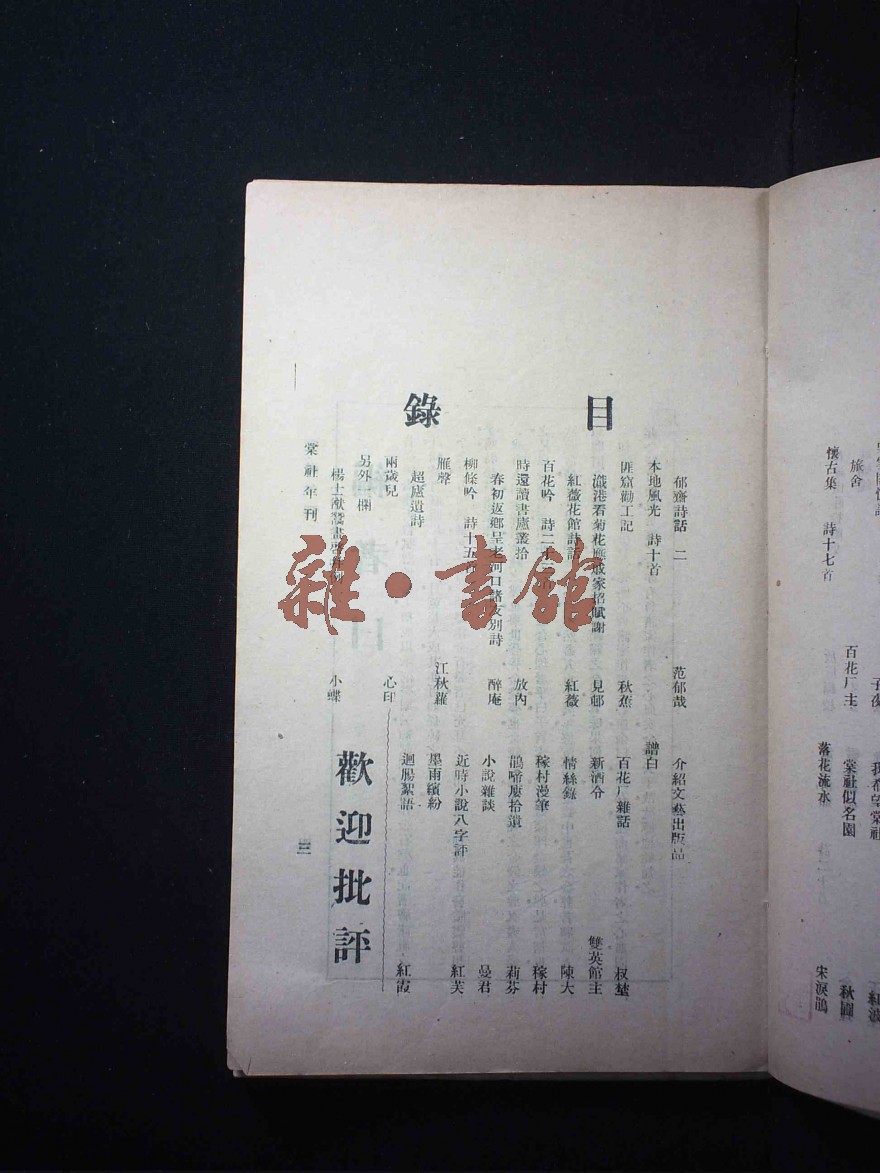 目錄
郁齋詩話 二 范郁哉
本地風光 詩十首 譜白
匪窟勸工記 秋蕉
瀛港看菊花應戚家招賦謝 見邨
紅薇花館詩話 紅薇
百花吟 詩二十
時還讀書廬叢拾 放內
春初返鄉呈老河口諸友別詩 醉庵
柳條吟 詩十五
雁聲 江秋蘿
超廬遺詩
兩歲兒 心印
另外一欄
楊士猷鬻書 小蝶
介紹文藝出版品
百花厂雜話 权埜
新酒令 雙英館主
情絲錄 陳大
稼村漫筆 稼村
鵑啼廔拾遺 莉芬
小說雜談 曼君
近時小說八字評 紅芙
墨雨繽紛
迴腸絮語 紅霞
歡迎批評
棠社年刊
三
雜·書館
旅舍
懷古集 詩十七首 百花厂主
我希望棠社 紅波
棠社似名園 秋圃
落花流水 宋淚鵑